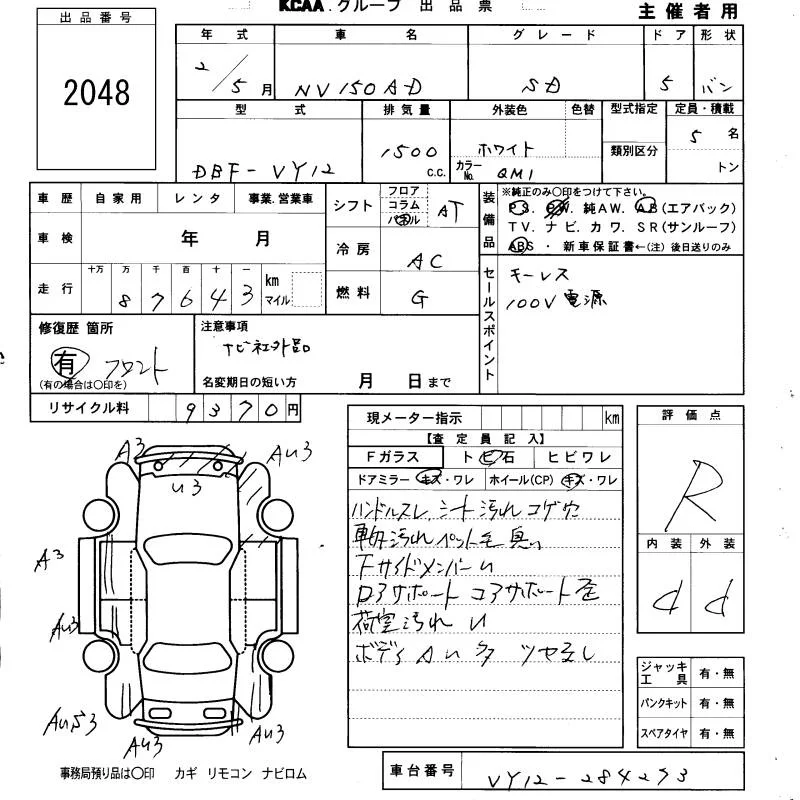 KCAA.グループ 出品票
主催者用
出品番号
2048
年式 車名 グレード ドア 形状
2/5月 NV150AD SD 5 バン
型式 排気量 外装色 色替 型式指定 定員・積載
DBF-VY12 1500 c.c. ホワイト 類別区分 5名
カラーNo. QM1 トン
車歴 自家用 レンタ 事業.営業車
車検 年 月
走行 十万 万 千 百 十 一
87643 km マイル
シフト フロア コラム パネル AT
冷房 AC
燃料 G
装備品 ※純正のみ○印をつけて下さい。
P S. P W. 純A W. A B (エアバック)
T V. ナ ビ. カ ワ. S R (サンルーフ)
ABS ・ 新車保証書←(注) 後日送りのみ
セールスポイント
キーレス
100V電源
修復歴 箇所
有 フロント
(有の場合は○印を)
注意事項
ナビ社外品
名変期日の短い方 月 日まで
リサイクル料 9370円
現メーター指示 km
【査定員記入】
Fガラス トビ石 ヒビワレ
ドアミラー キズ・ワレ ホイール(CP) キズ・ワレ
ハンドルスレ、シート汚れ コゲ穴
車内汚れ ペット毛 臭い
下サイドメンバーU
ロアサポート コアサポート歪
荷室汚れ U
ボディAU多 ツヤ無し
評価点
R
内装 外装
d d
ジャッキ工具 有・無
パンクキット 有・無
スペアタイヤ 有・無
A3
AU3
U3
A3
AU3
AU53
AU3
AU3
事務局預り品は○印 カギ リモコン ナビロム
車台番号 VY12-284293